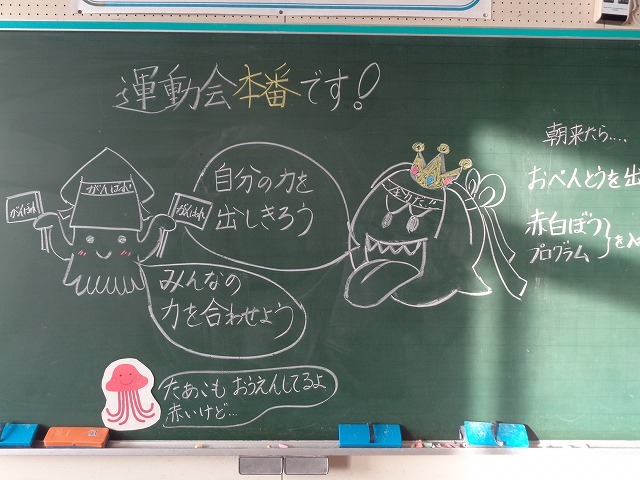 運動会本番です!
がんばれ!
がんばれ!
がんばれ!
自分の力を
出しきろう
みんなの
力を合わせよう
たあこも おうえんしてるよ
赤いけど…
朝来たら….
おべんとうを出
赤白ぼう
プログラム
を入